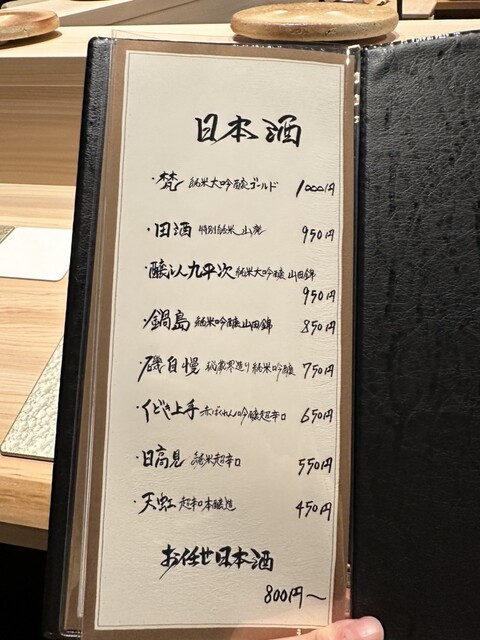 日本酒
・梵 純米大吟醸ゴールド 1000円
・田酒 特別純米 山廃 950円
・醸し人九平次 純米大吟醸 山田錦
950円
・鍋島 純米吟醸山田錦 850円
・磯自慢 秘蔵寒造り純米吟醸 750円
・くどき上手 赤ばくれん吟醸超辛口 650円
・日高見 純米超辛口 550円
・天虹 超辛口本醸造 450円
お任せ日本酒
800円～